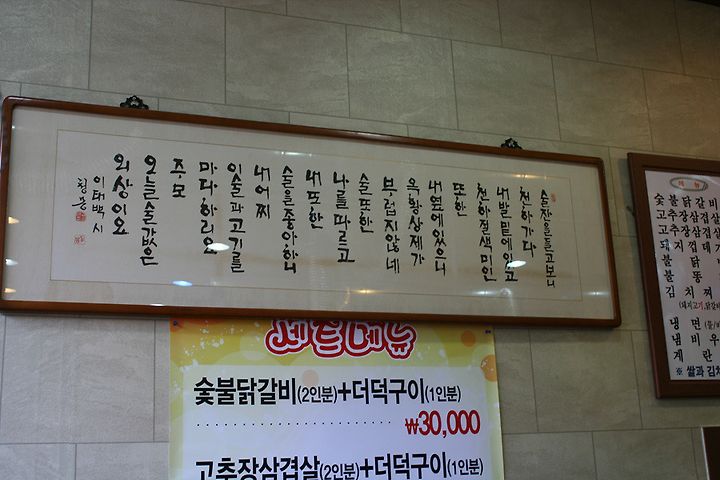 술잔을들고보니
천하가다
내발밑에있고
천하절색미인
또한
내옆에있으니
옥황상제가
부럽지않네
술또한
나를따르고
내또한
술을좋아하니
내어찌
이술과고기를
마다하리요
주모
오늘술값은
외상이요
이태백 시
세트메뉴
숯불닭갈비(2인분)+더덕구이(1인분)
₩30,000
고추장삼겹살(2인분)+더덕구이(1인분)
메뉴
숯불닭갈비
고추장삼겹살
고추장삼겹
돼지껍데
불닭
불똥
김치찌
(돼지고기,닭갈비
냉면
냄비우
계란
※ 쌀과 김치